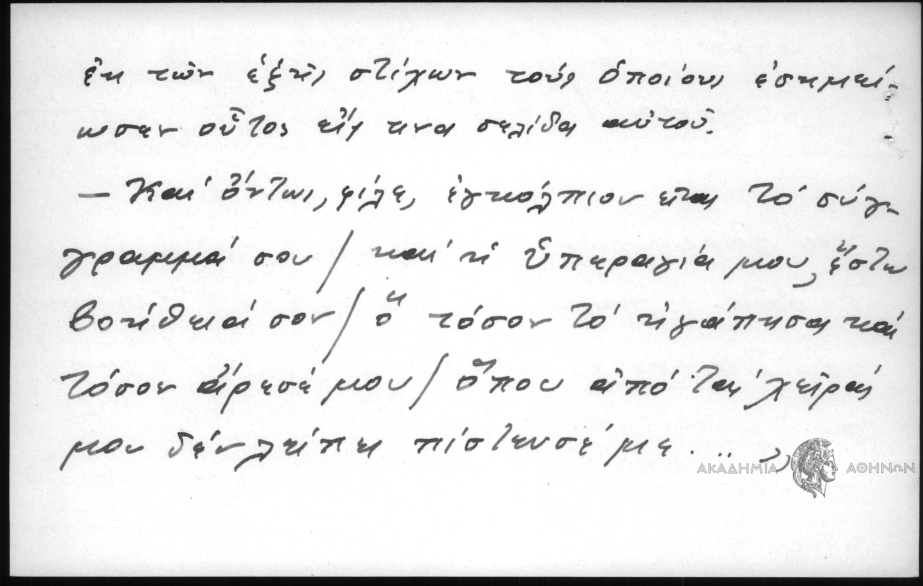 ἐκ τῶν ἑξῆς στίχων τούς ὁποίους ἐσημεί-
ωσεν οὗτος εἴς τινα σελίδα αὐτοῦ.
— Καί ὄντως, φίλε, ἐγκόλπιον εἶναι τό σύγ-
γραμμά σου / καί ἡ Ὑπεραγία μου, ἔστω
βοήθειά σου / ὅ τόσον τό ἠγάπησα καί
τόσον ἄρεσέ μου / ὅπου ἀπό τάς χεῖράς
μου δέν λείπει πίστευσέ με . .. »
ΑΚΑΔΗΜΙΑ ΑΘΗΝΩΝ